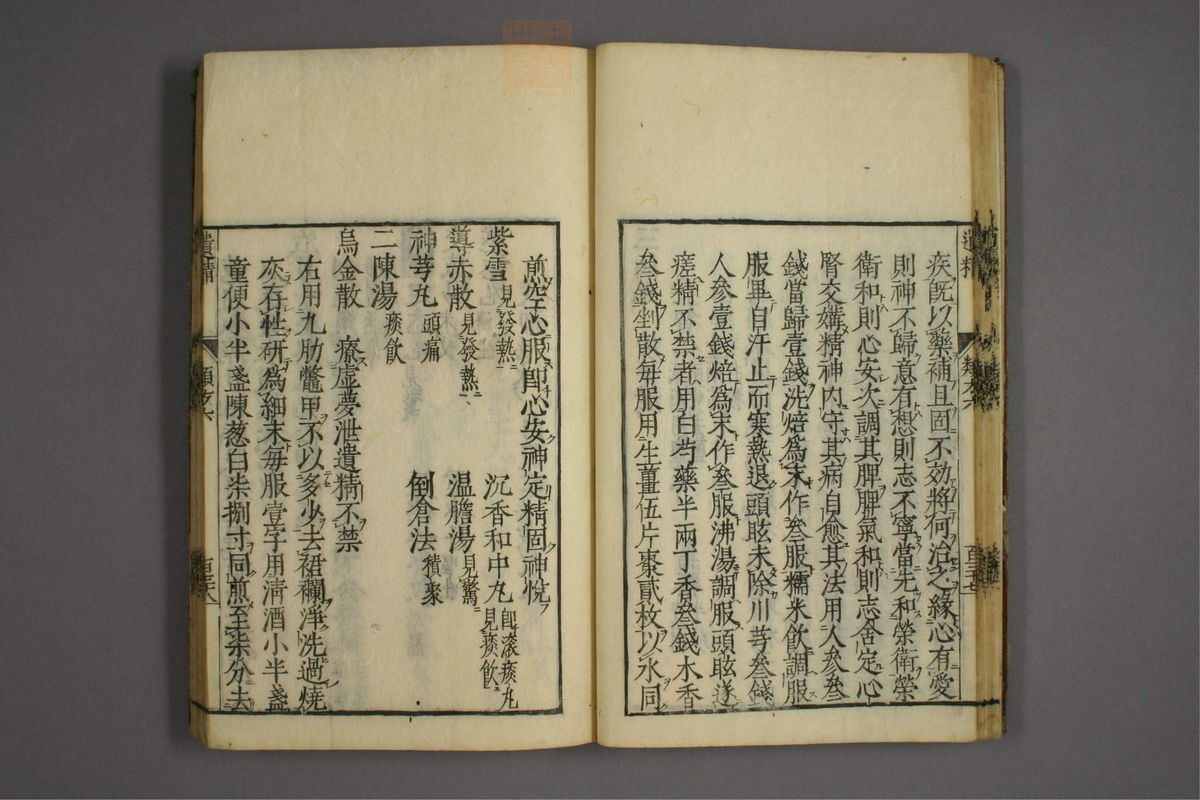 疾既以藥補且固不効將何治之緣心有愛
則神不歸意有想則志不寧當先和榮衛榮
衛和則心安次調其脾脾氣和則志舍定心
腎交媾精神內守其病自愈其法用人參叁
錢當歸壹錢洗焙為末作叁服糯米飲調服
服畢自汗止而寒熱退頭眩未除川芎叁錢
人參壹錢焙為末作叁服沸湯調服頭眩遂
瘥精不禁者用白芍藥半兩丁香叁錢木香
叁錢剉散每服用生薑伍片棗貳枚以水同
遺精
類方六
煎空心服即心安神定精固神悅
紫雪見發熱 沉香和中丸即滾痰丸見痰飲
導赤散見發熱 温膽湯見驚
神芎丸頭痛 倒倉法積聚
二陳湯痰飲
烏金散 療虛夢泄遺精不禁
右用九肋鱉甲不以多少去裙襴淨洗過燒
灰存性研為細末每服壹字用清酒小半盞
童便小半盞陳葱白柒捌寸同煎至柒分去
遺精
類方六